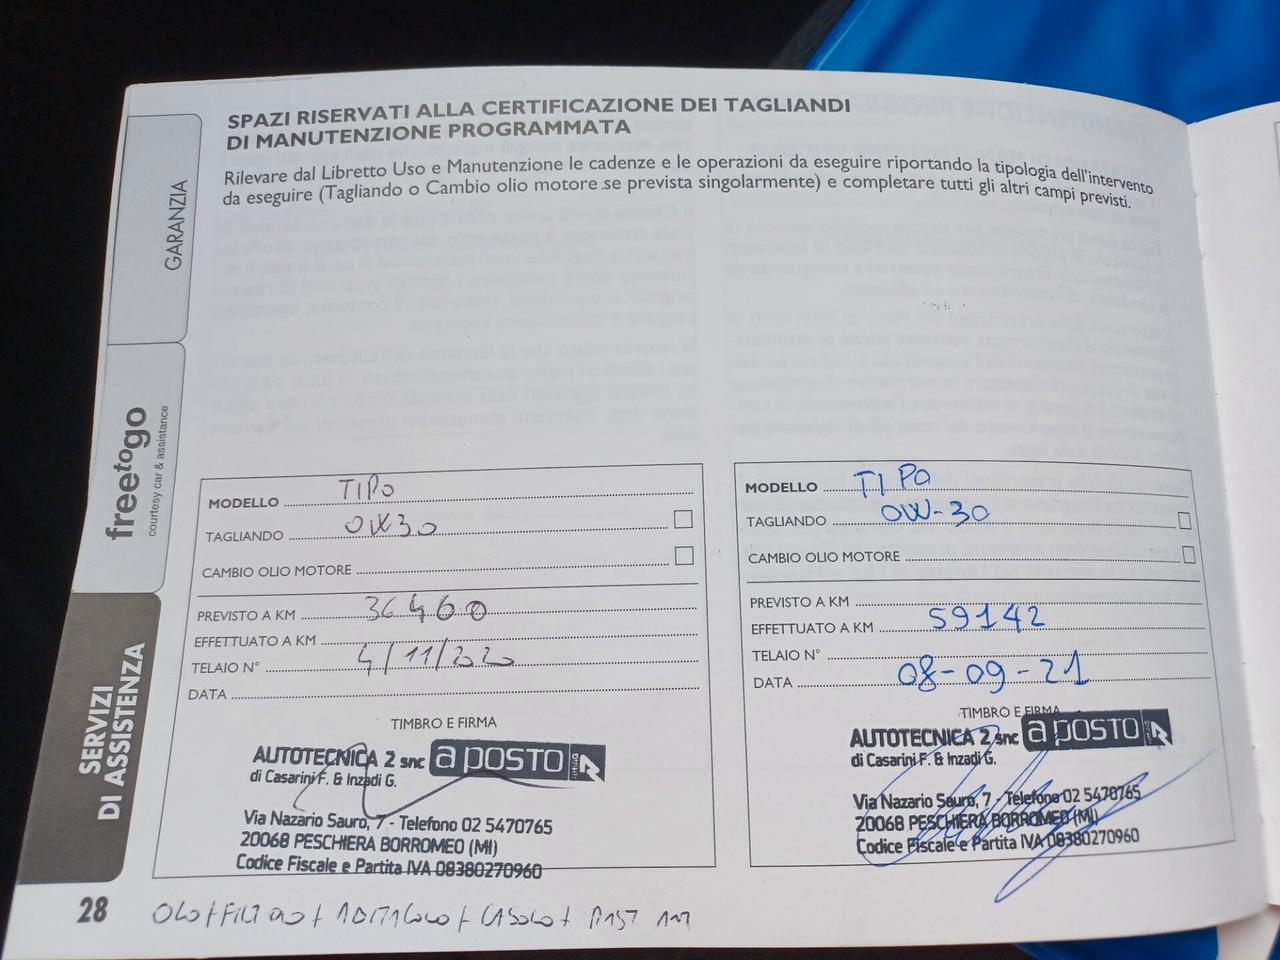 SPAZI RISERVATI ALLA CERTIFICAZIONE DEI TAGLIANDI
DI MANUTENZIONE PROGRAMMATA
Rilevare dal Libretto Uso e Manutenzione le cadenze e le operazioni da eseguire riportando la tipologia dell'intervento
da eseguire (Tagliando o Cambio olio motore se prevista singolarmente) e completare tutti gli altri campi previsti.
GARANZIA
freetogo
courtesy car & assistance
SERVIZI
DI ASSISTENZA
MODELLO TIPO
TAGLIANDO 0W30
CAMBIO OLIO MOTORE
PREVISTO A KM 36460
EFFETTUATO A KM
TELAIO N° 4/11/2020
DATA
TIMBRO E FIRMA
AUTOTECNICA 2 snc a POSTO
di Casarini F. & Inzadi G.
Via Nazario Sauro, 7 - Telefono 02 5470765
20068 PESCHIERA BORROMEO (MI)
Codice Fiscale e Partita IVA 08380270960
MODELLO TIPO
TAGLIANDO 0W-30
CAMBIO OLIO MOTORE
PREVISTO A KM
EFFETTUATO A KM 59142
TELAIO N°
DATA 08-09-21
TIMBRO E FIRMA
AUTOTECNICA 2 snc a POSTO
di Casarini F. & Inzadi G.
Via Nazario Sauro, 7 - Telefono 02 5470765
20068 PESCHIERA BORROMEO (MI)
Codice Fiscale e Partita IVA 08380270960
28